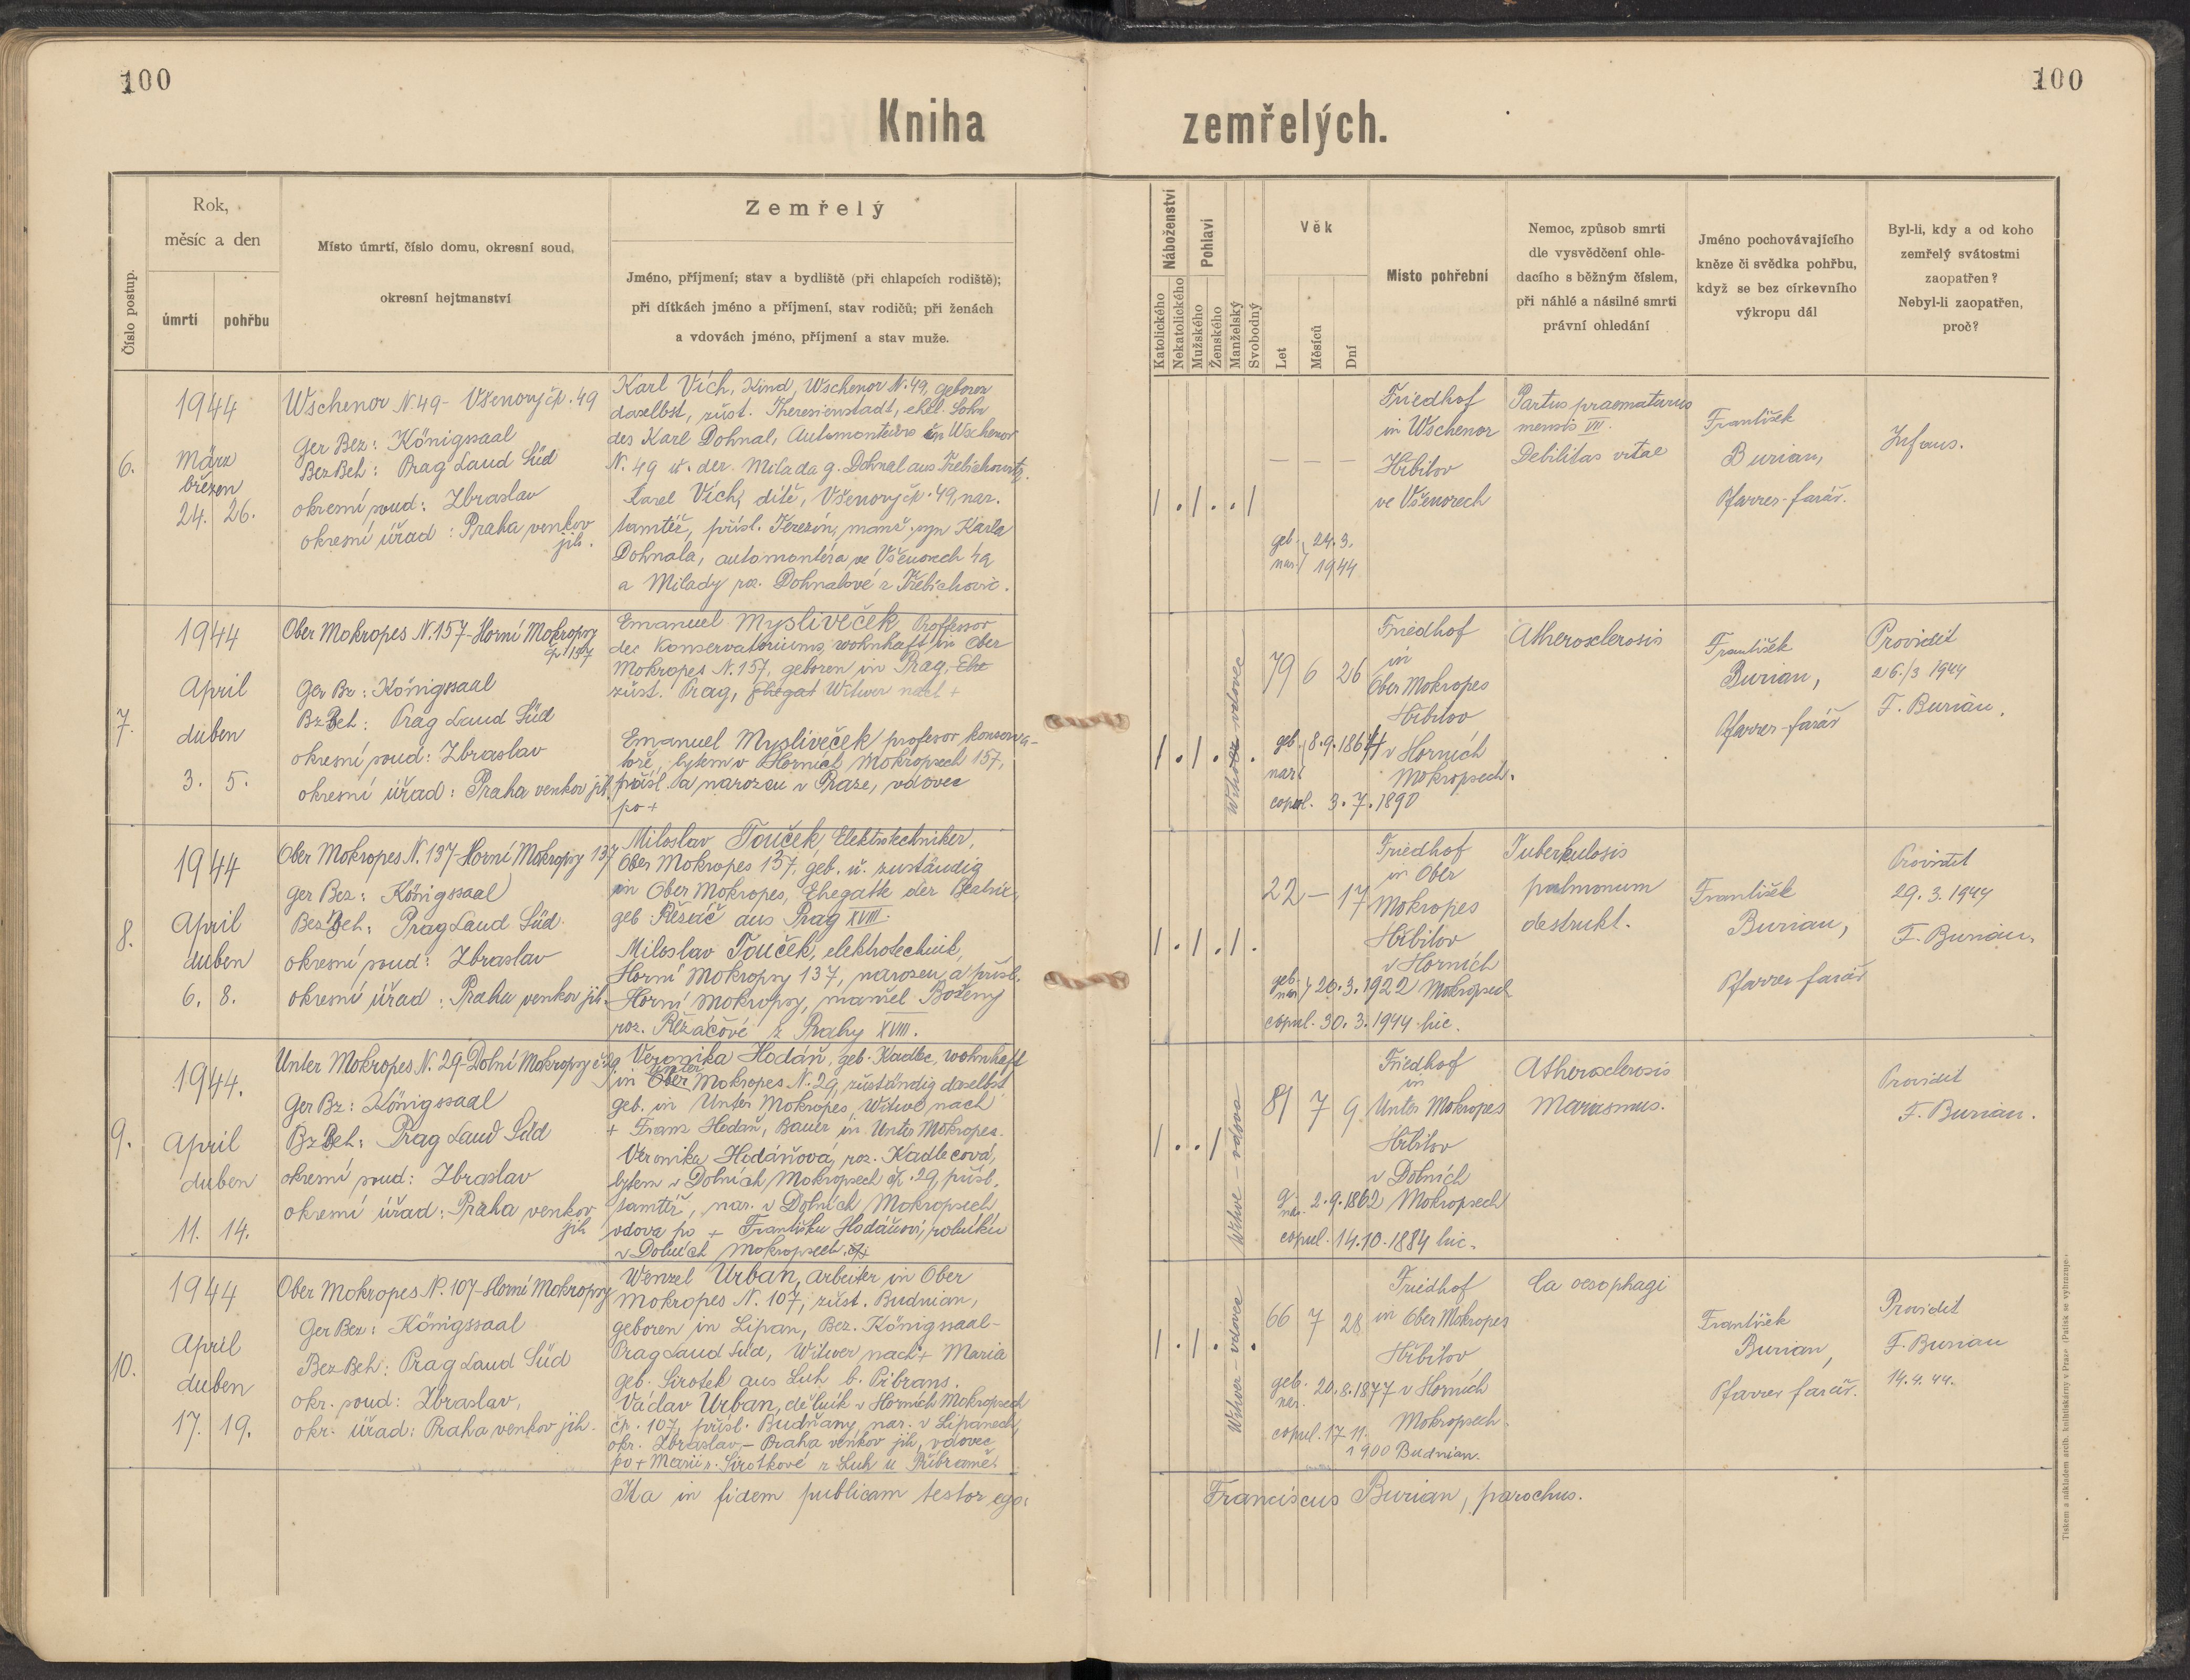 100
100
Kniha
zemřelých.
Číslo postup.
Rok,
měsíc a den
úmrtí
pohřbu
Místo úmrtí, číslo domu, okresní soud,
okresní hejtmanství
Zemřelý
Jméno, příjmení; stav a bydliště (při chlapcích rodiště);
při dítkách jméno a příjmení, stav rodičů; při ženách
a vdovách jméno, příjmení a stav muže.
Náboženství
Katolického
Nekatolického
Pohlaví
Mužského
Ženského
Manželský
Svobodný
Věk
Let
Měsíců
Dní
Místo pohřební
Nemoc, způsob smrti
dle vysvědčení ohle-
dacího s běžným číslem,
při náhlé a násilné smrti
právní ohledání
Jméno pochovávajícího
kněze či svědka pohřbu,
když se bez církevního
výkropu dál
Byl-li, kdy a od koho
zemřelý svátostmi
zaopatřen?
Nebyl-li zaopatřen,
proč?
6.
1944
März
březen
24. 26.
Wschenor N. 49 - Všenory čp. 49
Ger Bez: Königssaal
Bez Beh: Prag Land Süd
okresní soud: Zbraslav
okresní úřad: Praha venkov
jih.
Karl Vích, Kind, Wschenor N. 49, geboren
daselbst, züst. Theresienstadt, ehel. Sohn
des Karl Dohnal, Automonteur in Wschenor
N. 49 u. der Milada g. Dohnal aus Trebichowitz.
Karel Vích, dítě, Všenory čp. 49, nar.
tamtéž, přísl. Terezín, manž. syn Karla
Dohnala, automontéra ve Všenorech 49
a Milady roz. Dohnalové z Třebichovic.
1 . 1 . . 1
— — —
geb. 24. 3.
nar. 1944
Friedhof
in Wschenor
Hřbitov
ve Všenorech
Partus praematurus
mensis VIII.
Debilitas vitae
František
Burian,
Pfarrer-farář.
Infans.
7.
1944
April
duben
3. 5.
Ober Mokropes N. 157 - Horní Mokropsy
čp. 157
Ger Bz: Königssaal
Bz Beh: Prag Land Süd
okresní soud: Zbraslav
okresní úřad: Praha venkov jih.
Emanuel Mysliveček Proffessor
der Konservatoriums, wohnhaft in Ober
Mokropes N. 157, geboren in Prag, Ehe
züst. Prag, Ehegat Witwer nach +
Emanuel Mysliveček profesor konserva-
toře, bytem v Horních Mokropsech 157,
přísl. a narozen v Praze, vdovec
po +
1 . 1 . .
Witwer vdovec
79 6 26
geb. 8. 9. 1864
nar.
copul. 3. 7. 1890
Friedhof
in
Ober Mokropes
Hřbitov
v Horních
Mokropsech.
Atherosclerosis
František
Burian,
Pfarrer-farář
Providit
26./3 1944
F. Burian.
8.
1944
April
duben
6. 8.
Ober Mokropes N. 137 - Horní Mokropsy 137
Ger Bez: Königssaal
Bez Beh: Prag Land Süd
okresní soud: Zbraslav
okresní úřad: Praha venkov jih.
Miloslav Touček, Elektrotechniker,
Ober Mokropes 137, geb. u. zuständig
in Ober Mokropes, Ehegatte der
geb. aus Prag XVIII.
Miloslav Touček, elektrotechnik,
Horní Mokropsy 137, narozen a přísl.
Horní Mokropsy, manžel Boženy
roz. Řezáčové z Prahy XVIII.
1 . 1 . 1 .
22 — 17
geb.
nar. 20. 3. 1922
copul. 30. 3. 1944 hic.
Friedhof
in Ober
Mokropes
Hřbitov
v Horních
Mokropsech
Tuberkulosis
pulmonum
destrukt.
František
Burian,
Pfarrer farář
Providit
29. 3. 1944
F. Burian.
9.
1944.
April
duben
11. 14.
Unter Mokropes N. 29 - Dolní Mokropsy č. 29
Ger Bz: Königssaal
Bz Beh: Prag Land Süd
okresní soud: Zbraslav
okresní úřad: Praha venkov
jih
Veronika Hodáň, geb. Kadlec, wohnhaft
in Ober Unter Mokropes N. 29, züständig daselbst
geb. in Unter Mokropes, Witwe nach
+ Franz Hodaň, Bauer in Unter Mokropes.
Veronika Hodáňová, roz. Kadlecová,
bytem v Dolních Mokropsech čp. 29, přísl.
tamtéž, nar. v Dolních Mokropsech,
vdova po + Františku Hodáňovi, rolníku
v Dolních Mokropsech.
1 . . 1
Witwe - vdova
81 7 9
g.
nar. 2. 9. 1862
copul. 14. 10. 1884 hic.
Friedhof
in
Unter Mokropes
Hřbitov
v Dolních
Mokropsech
Atherosclerosis
Marasmus.
Providit
F. Burian.
10.
1944
April
duben
17. 19.
Ober Mokropes N. 107 - Horní Mokropsy
Ger Bez: Königssaal
Bez Beh: Prag Land Süd
okr. soud: Zbraslav,
okr. úřad: Praha venkov jih.
Wenzel Urban, Arbeiter in Ober
Mokropes N. 107, züst. Budnian,
geboren in Lipan, Bez. Königssaal-
Prag Land Süd, Witwer nach + Maria
geb. Sirotek aus Luh b. Pibrans.
Václav Urban, dělník v Horních Mokropsech
čp. 107, přísl. Budňany, nar. v Lipanech,
okr. Zbraslav - Praha venkov jih, vdovec
po + Marii r. Sirotkové z Luh u Příbramě.
1 . 1 . .
Witwer - vdovec
66 7 28
geb.
nar. 20. 8. 1877
copul. 17. 11.
1900 Budnian.
Friedhof
in Ober Mokropes
Hřbitov
v Horních
Mokropsech.
Ca oesophagi
František
Burian,
Pfarrer farář.
Providit
F. Burian
14. 4. 44.
Ita in fidem publicam testor ego:
Franciscus Burian, parochus.
Tiskem a nákladem arcib. knihtiskárny v Praze. (Patisk se vyhrazuje.)